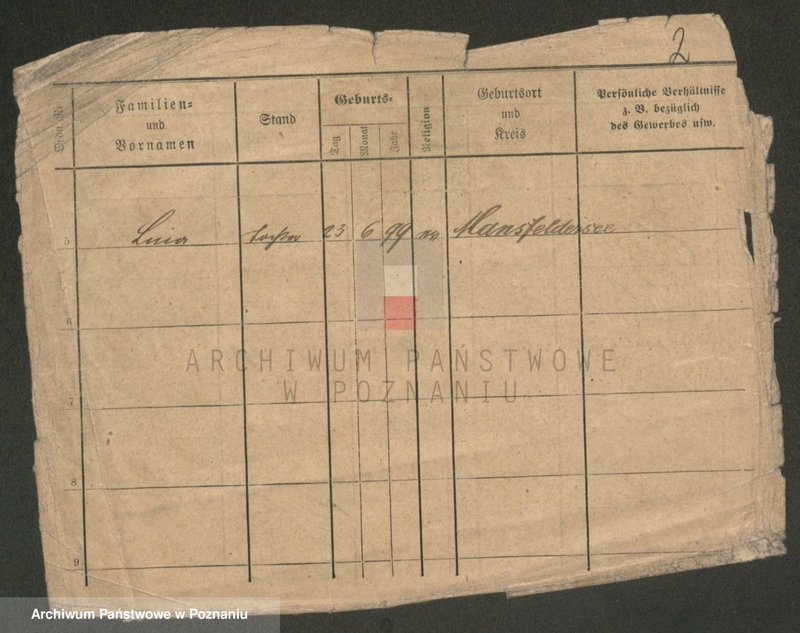 2
Ordn. Nr.
Familien=
und
Vornamen
Stand
Geburts=
Tag
Monat
Jahr
Religion
Geburtsort
und
Kreis
Persönliche Verhältnisse
z. B. bezüglich
des Gewerbes usw.
5 Luia 23 6 99 Mansfeldersee
6
ARCHIWUM PAŃSTWOWE
W POZNANIU
7
8
9
Archiwum Państwowe w Poznaniu